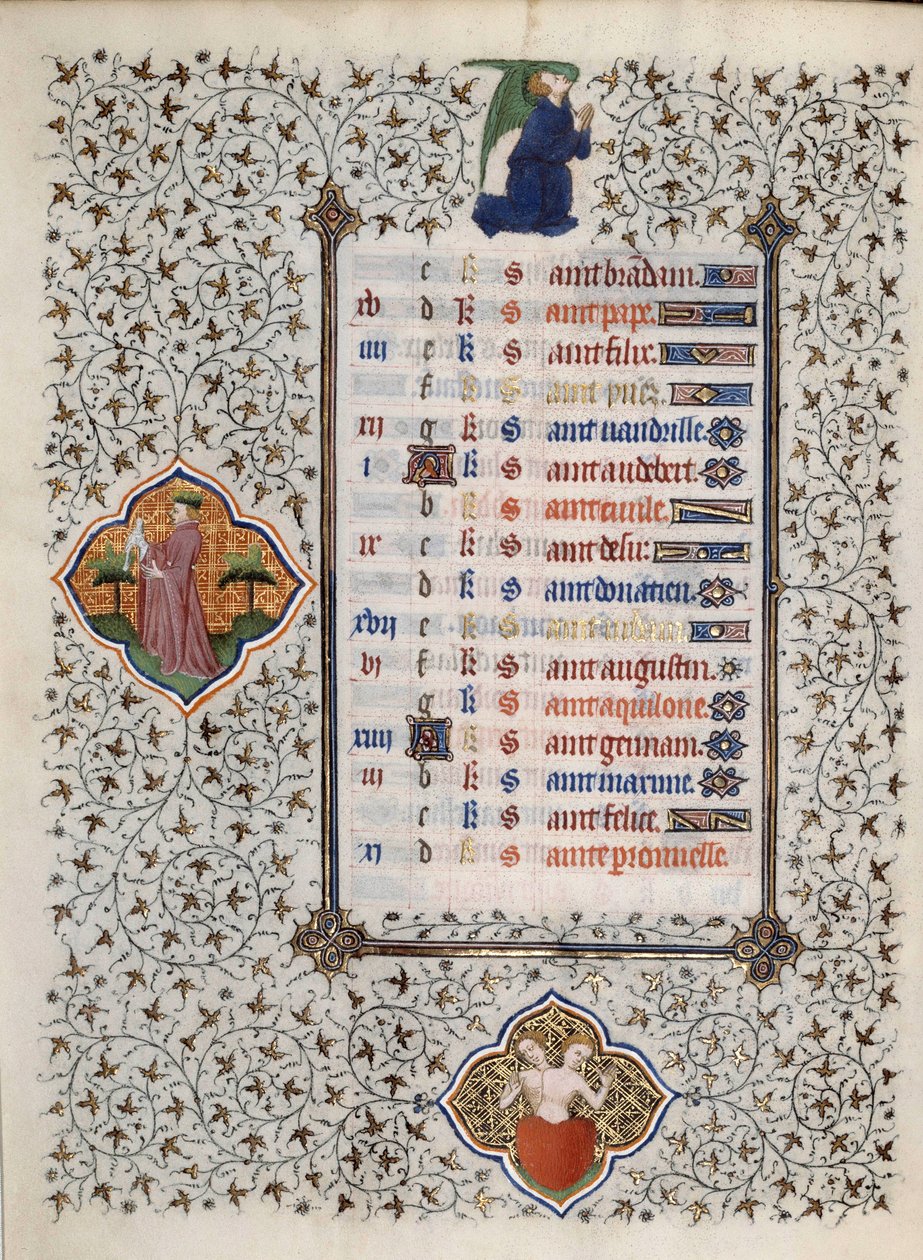 c k Saint brādam.
xv d k Saint pape.
iiij e k Saint filix.
f k Saint
xij g k Saint uandrille.
i A k Saint audebert.
b k Saint
ix c k Saint desir.
d k Saint donatien.
xvij e k Saint
vj f k Saint augustin.
g k Saint aquilone.
xiiij A k Saint germain.
iij b k Saint maxime.
c k Saint felice.
xj d k Sainte peronnelle.